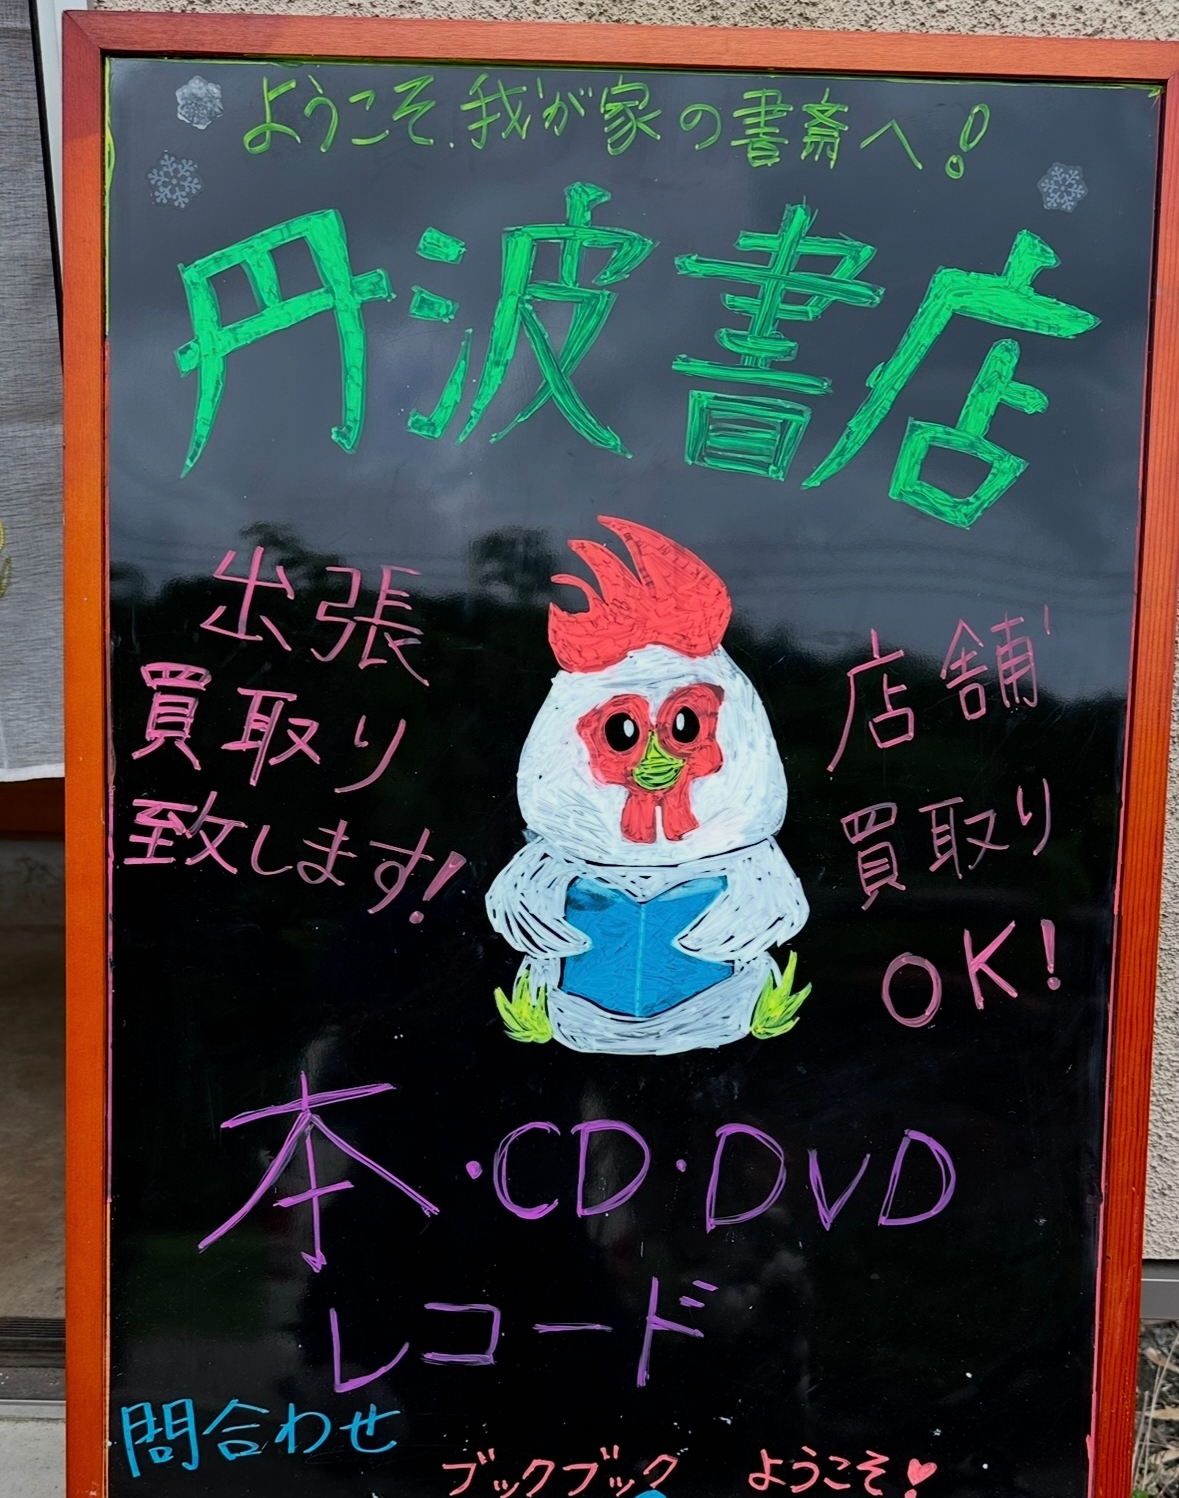 ようこそ.我が家の書斎へ!
丹波書店
出張
買取り
致します!
店舗
買取り
OK!
本・CD・DVD
レコード
問合わせ
ブックブック ようこそ♥